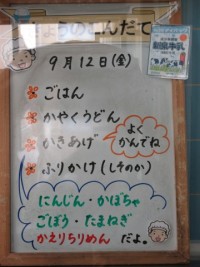 きょうのこんだて
9月12日(金)
ごはん
かやくうどん
かきあげ
よく
かんでね
ふりかけ(しそのか)
にんじん・かぼちゃ
ごぼう・たまねぎ
かえりちりめん だよ。